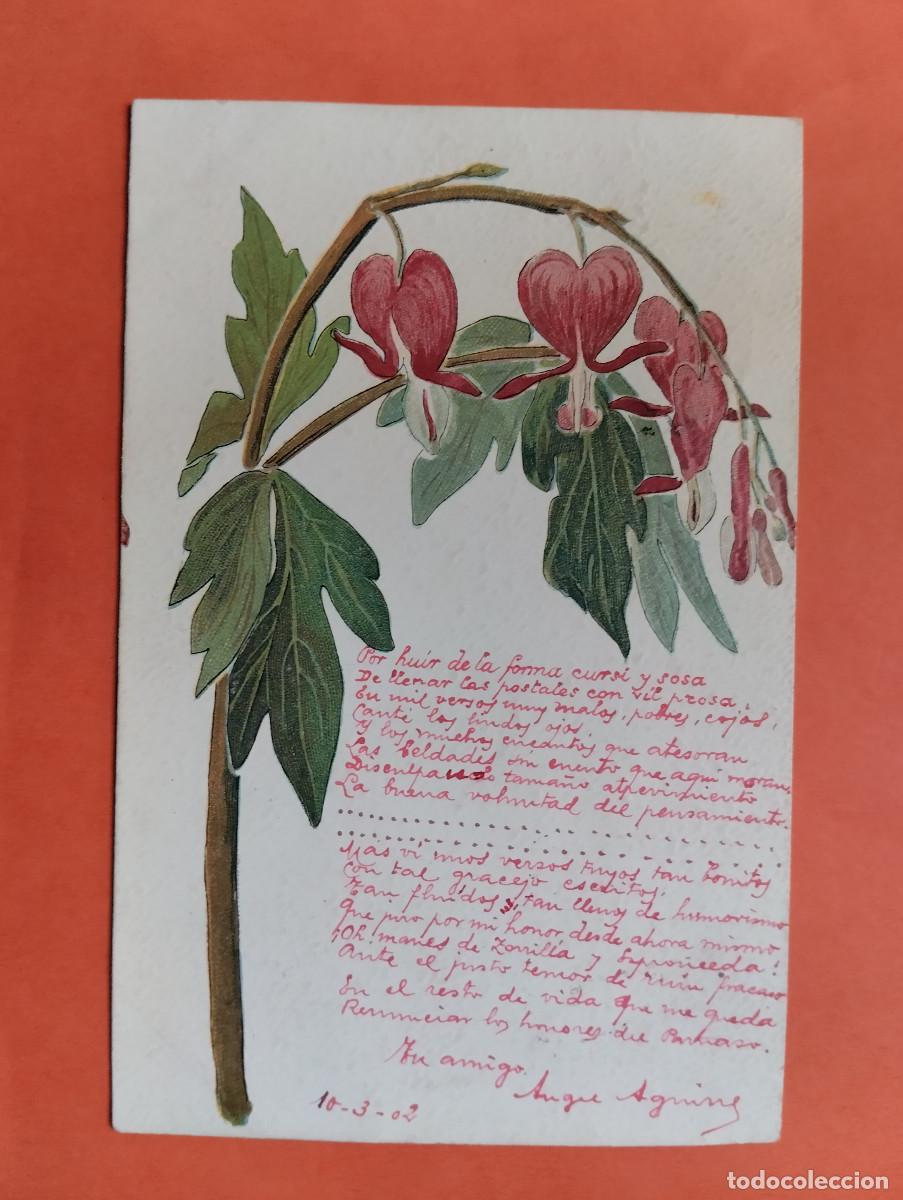 Por huir de la forma cursi y sosa
De llenar las postales con vil prosa,
En mil versos muy malos, pobres, cojos,
Canté los lindos ojos,
Y los muchos encantos que atesoran
Las beldades sin cuento que aquí moran,
Disculpando tamaño atrevimiento
La buena voluntad del pensamiento.
Mas vi unos versos tuyos tan bonitos
Con tal gracejo escritos,
Tan fluidos y tan llenos de humorismo
Que juro por mi honor desde ahora mismo
¡Oh manes de Zorrilla y Espronceda!
Ante el justo temor de ruin fracaso
En el resto de vida que me queda
Renunciar los honores del Parnaso.
Tu amigo.
Aguirre
10-3-02
todocoleccion